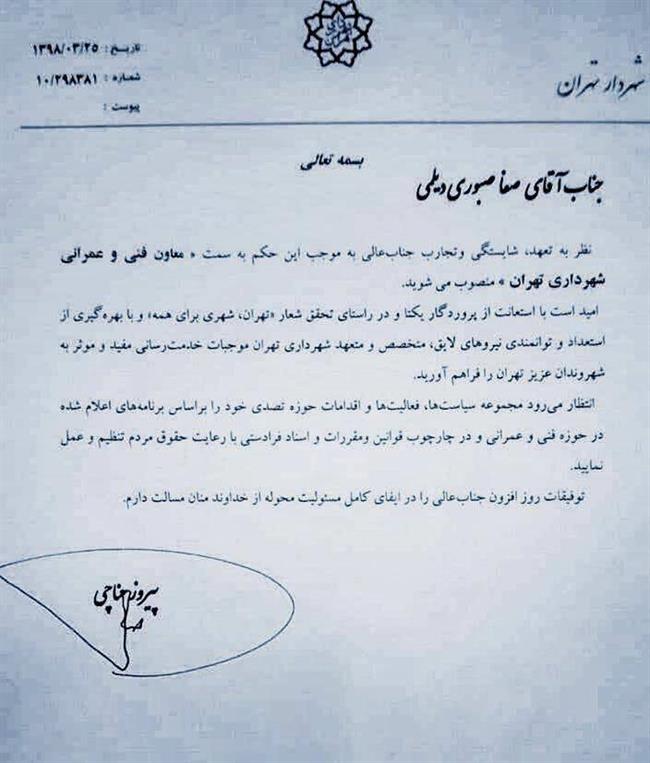 تاریخ : ۱۳۹۸/۰۳/۲۵
شماره : ۱۰/۲۹۸۳۸۱
پیوست :
شهردار تهران
بسمه تعالی
جناب آقای صفا صبوری دیلمی
نظر به تعهد، شایستگی وتجارب جناب‌عالی به موجب این حکم به سمت « معاون فنی و عمرانی
شهرداری تهران » منصوب می شوید.
امید است با استعانت از پروردگار یکتا و در راستای تحقق شعار «تهران، شهری برای همه» و با بهره‌گیری از
استعداد و توانمندی نیروهای لایق، متخصص و متعهد شهرداری تهران موجبات خدمت‌رسانی مفید و موثر به
شهروندان عزیز تهران را فراهم آورید.
انتظار می‌رود مجموعه سیاست‌ها، فعالیت‌ها و اقدامات حوزه تصدی خود را براساس برنامه‌های اعلام شده
در حوزه فنی و عمرانی و در چارچوب قوانین ومقررات و اسناد فرادستی با رعایت حقوق مردم تنظیم و عمل
نمایید.
توفیقات روز افزون جناب‌عالی را در ایفای کامل مسئولیت محوله از خداوند منان مسالت دارم.
پیروز حناچی